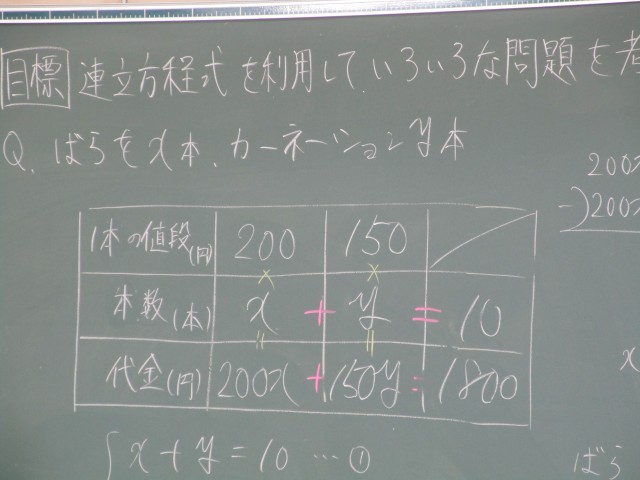 目標 連立方程式を利用して、いろいろな問題を考
Q. ばらをx本、カーネーションy本
200x
-) 200x
1本の値段(円) 200 150
× ×
本数(本) x + y = 10
|| ||
代金(円) 200x + 150y = 1800
x
{ x + y = 10 … ①
ばら